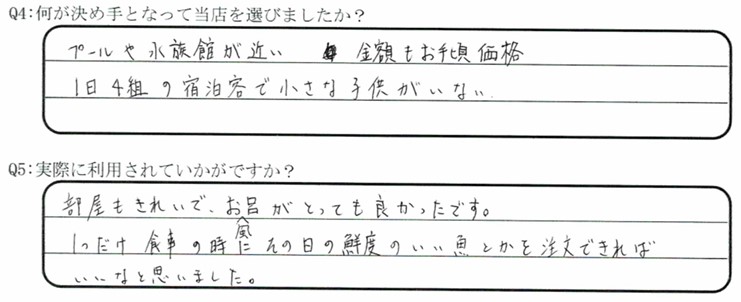 Q4:何が決め手となって当店を選びましたか？
プールや水族館が近い 金額もお手頃価格
1日4組の宿泊客で小さな子供がいない.
Q5:実際に利用されていかがですか？
部屋もきれいで、お風呂がとっても良かったです。
1つだけ 食事の時に その日の鮮度のいい魚とかを注文できれば
いいなと思いました。